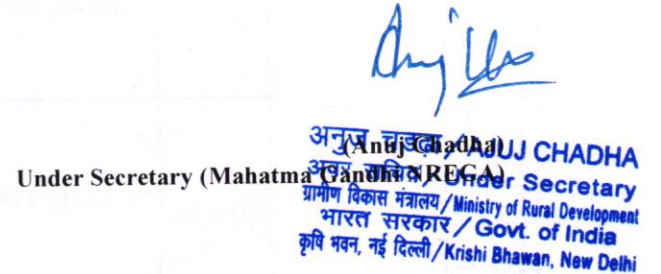 (Anuj Chadha)
Under Secretary (Mahatma Gandhi NREGA)
अनुज चड्ढा / ANUJ CHADHA
अवर सचिव / Under Secretary
ग्रामीण विकास मंत्रालय / Ministry of Rural Development
भारत सरकार / Govt. of India
कृषि भवन, नई दिल्ली / Krishi Bhawan, New Delhi